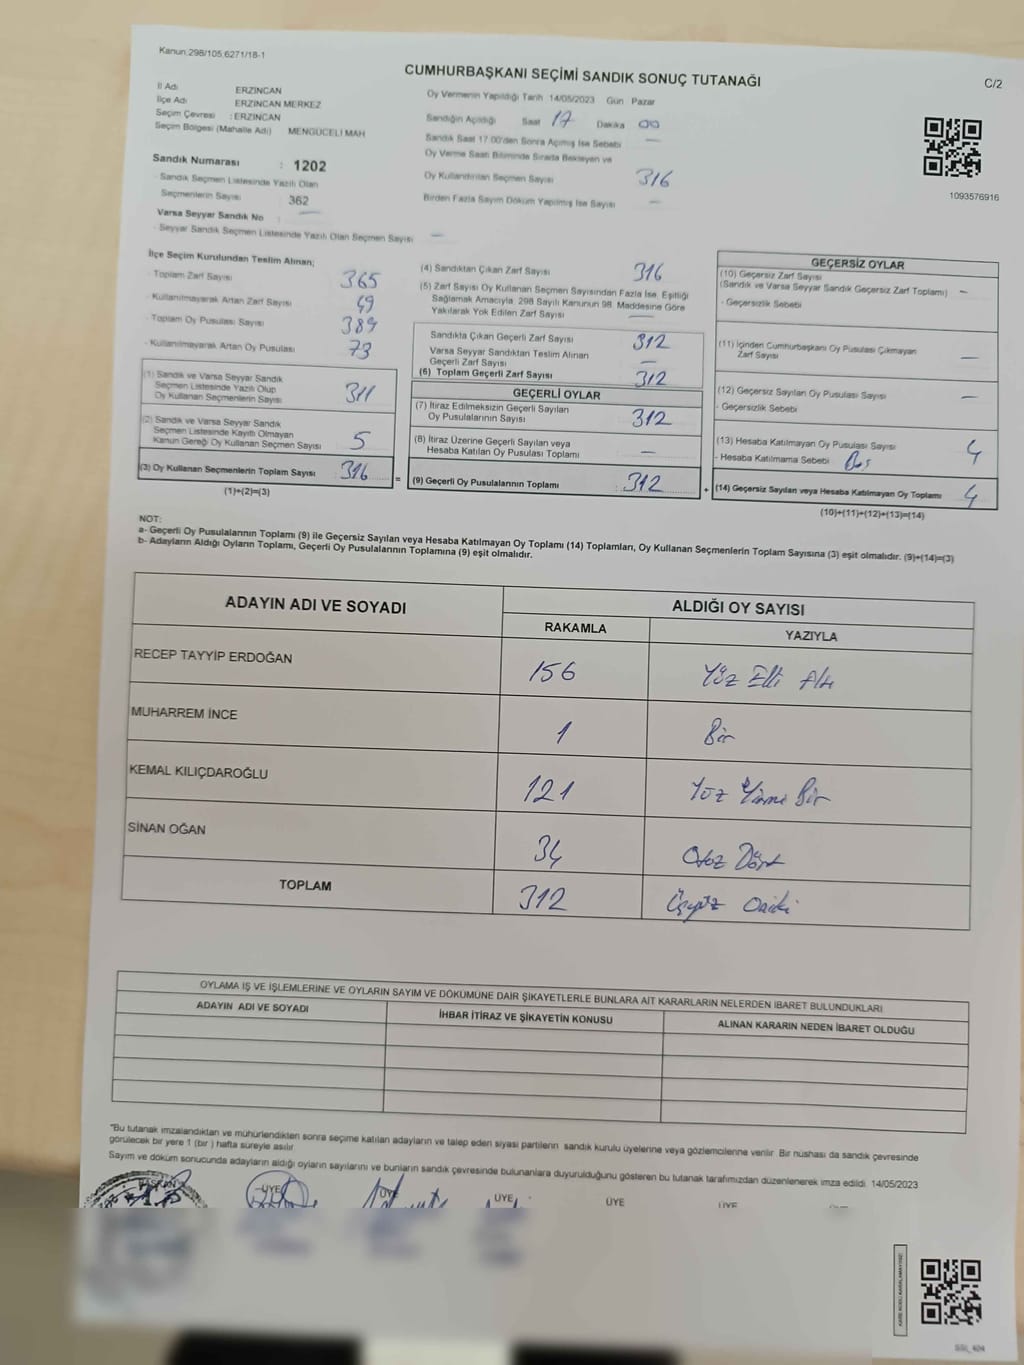 Kanun:298/105,6271/18-1
CUMHURBAŞKANI SEÇİMİ SANDIK SONUÇ TUTANAĞI
C/2
İl Adı ERZİNCAN
İlçe Adı ERZİNCAN MERKEZ
Seçim Çevresi : ERZİNCAN
Seçim Bölgesi (Mahalle Adı) MENGÜCELİ MAH
Sandık Numarası : 1202
- Sandık Seçmen Listesinde Yazılı Olan
Seçmenlerin Sayısı 362
Varsa Seyyar Sandık No —
- Seyyar Sandık Seçmen Listesinde Yazılı Olan Seçmen Sayısı —
Oy Vermenin Yapıldığı Tarih 14/05/2023 Gün Pazar
Sandığın Açıldığı Saat 17 Dakika 00
Sandık Saat 17.00'den Sonra Açılmış İse Sebebi —
Oy Verme Saati Bitiminde Sırada Bekleyen ve
Oy Kullandırılan Seçmen Sayısı 316
Birden Fazla Sayım Döküm Yapılmış İse Sayısı —
1093576916
İlçe Seçim Kurulundan Teslim Alınan;
- Toplam Zarf Sayısı 365
- Kullanılmayarak Artan Zarf Sayısı 49
- Toplam Oy Pusulası Sayısı 389
- Kullanılmayarak Artan Oy Pusulası 73
(1) Sandık ve Varsa Seyyar Sandık
Seçmen Listesinde Yazılı Olup
Oy Kullanan Seçmenlerin Sayısı 311
(2) Sandık ve Varsa Seyyar Sandık
Seçmen Listesinde Kayıtlı Olmayan
Kanun Gereği Oy Kullanan Seçmen Sayısı 5
(3) Oy Kullanan Seçmenlerin Toplam Sayısı 316 =
(1)+(2)=(3)
(4) Sandıktan Çıkan Zarf Sayısı 316
(5) Zarf Sayısı Oy Kullanan Seçmen Sayısından Fazla İse, Eşitliği
Sağlamak Amacıyla, 298 Sayılı Kanunun 98. Maddesine Göre
Yakılarak Yok Edilen Zarf Sayısı —
Sandıkta Çıkan Geçerli Zarf Sayısı 312
Varsa Seyyar Sandıktan Teslim Alınan
Geçerli Zarf Sayısı —
(6) Toplam Geçerli Zarf Sayısı 312
GEÇERLİ OYLAR
(7) İtiraz Edilmeksizin Geçerli Sayılan
Oy Pusulalarının Sayısı 312
(8) İtiraz Üzerine Geçerli Sayılan veya
Hesaba Katılan Oy Pusulası Toplamı —
(9) Geçerli Oy Pusulalarının Toplamı 312 +
GEÇERSİZ OYLAR
(10) Geçersiz Zarf Sayısı
(Sandık ve Varsa Seyyar Sandık Geçersiz Zarf Toplamı) —
- Geçersizlik Sebebi
(11) İçinden Cumhurbaşkanı Oy Pusulası Çıkmayan
Zarf Sayısı —
(12) Geçersiz Sayılan Oy Pusulası Sayısı —
- Geçersizlik Sebebi
(13) Hesaba Katılmayan Oy Pusulası Sayısı 4
- Hesaba Katılmama Sebebi Boş
(14) Geçersiz Sayılan veya Hesaba Katılmayan Oy Toplamı 4
(10)+(11)+(12)+(13)=(14)
NOT:
a- Geçerli Oy Pusulalarının Toplamı (9) ile Geçersiz Sayılan veya Hesaba Katılmayan Oy Toplamı (14) Toplamları, Oy Kullanan Seçmenlerin Toplam Sayısına (3) eşit olmalıdır. (9)+(14)=(3)
b- Adayların Aldığı Oyların Toplamı, Geçerli Oy Pusulalarının Toplamına (9) eşit olmalıdır.
ADAYIN ADI VE SOYADI ALDIĞI OY SAYISI
RAKAMLA YAZIYLA
RECEP TAYYİP ERDOĞAN 156 Yüz Elli Altı
MUHARREM İNCE 1 Bir
KEMAL KILIÇDAROĞLU 121 Yüz Yirmi Bir
SİNAN OĞAN 34 Otuz Dört
TOPLAM 312 Üçyüz Oniki
OYLAMA İŞ VE İŞLEMLERİNE VE OYLARIN SAYIM VE DÖKÜMÜNE DAİR ŞİKAYETLERLE BUNLARA AİT KARARLARIN NELERDEN İBARET BULUNDUKLARI
ADAYIN ADI VE SOYADI İHBAR İTİRAZ VE ŞİKAYETİN KONUSU ALINAN KARARIN NEDEN İBARET OLDUĞU
"Bu tutanak imzalandıktan ve mühürlendikten sonra seçime katılan adayların ve talep eden siyasi partilerin sandık kurulu üyelerine veya gözlemcilerine verilir. Bir nüshası da sandık çevresinde
görülecek bir yere 1 (bir ) hafta süreyle asılır.
Sayım ve döküm sonucunda adayların aldığı oyların sayılarını ve bunların sandık çevresinde bulunanlara duyurulduğunu gösteren bu tutanak tarafımızdan düzenlenerek imza edildi. 14/05/2023
BAŞKAN ÜYE ÜYE ÜYE ÜYE ÜYE